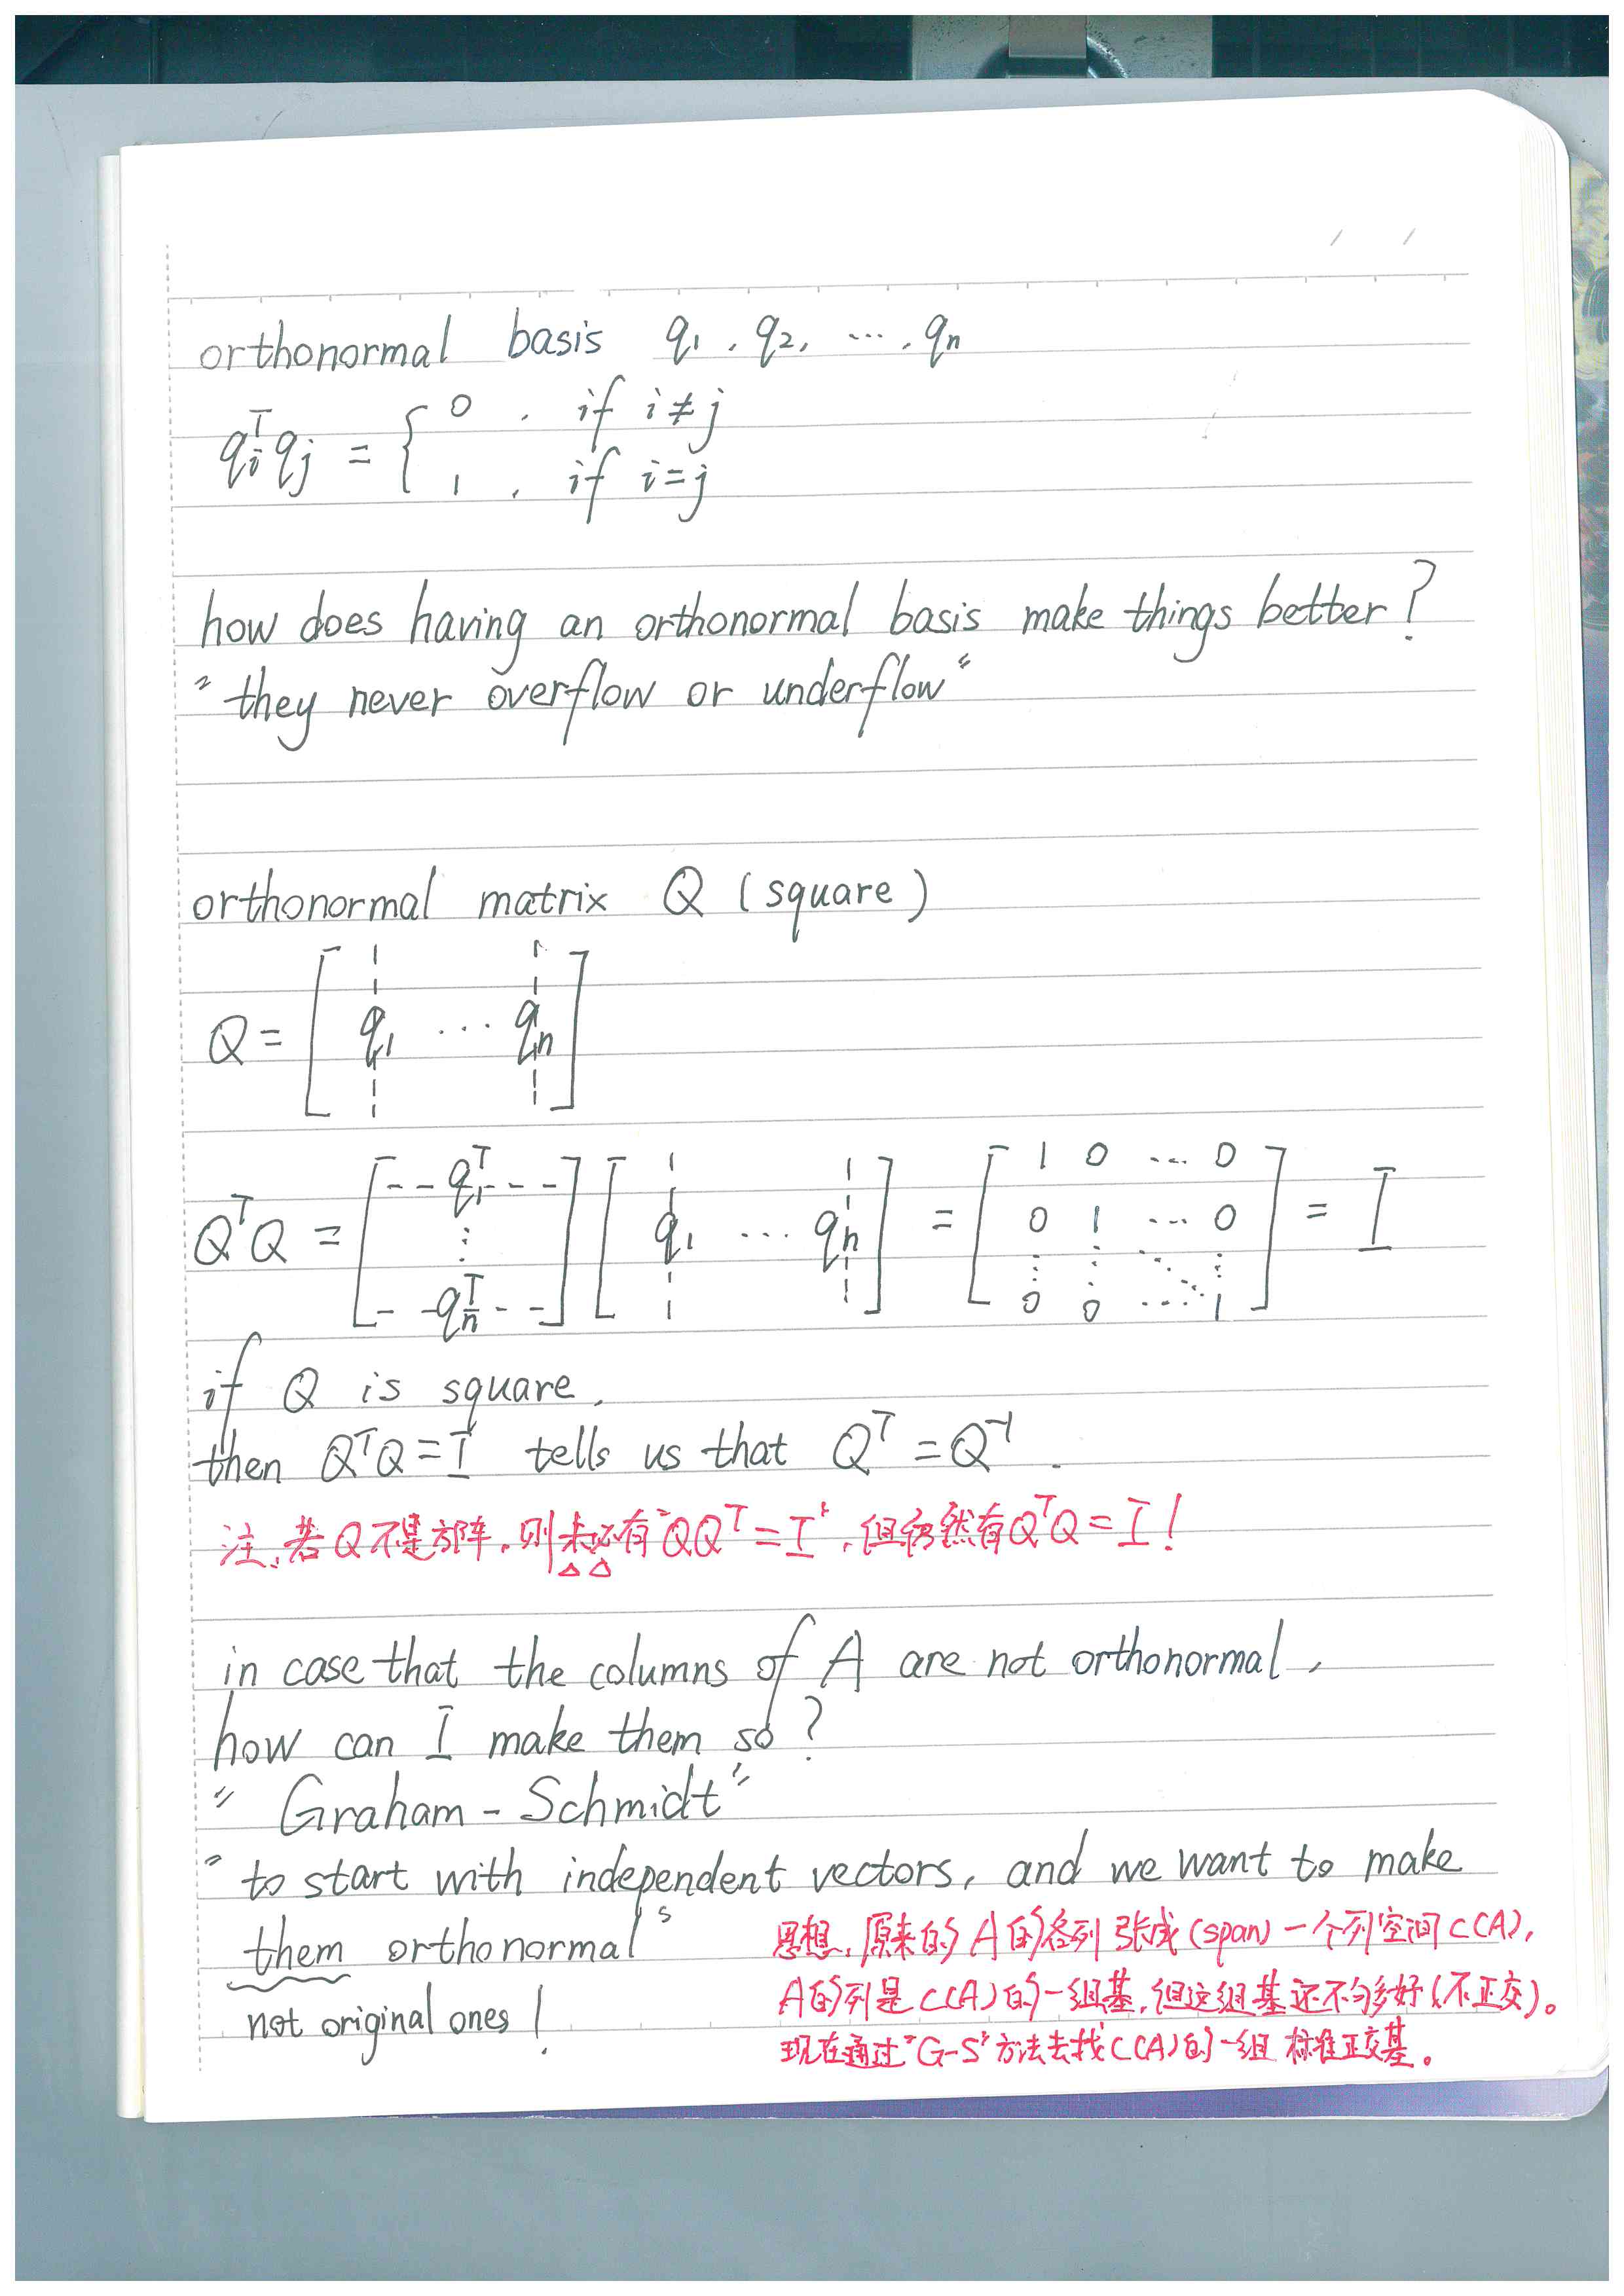 orthonormal basis q₁, q₂, ⋯, qₙ
qᵢᵀqⱼ = { 0, if i≠j
1, if i=j
how does having an orthonormal basis make things better?
"they never overflow or underflow"
orthonormal matrix Q (square)
Q = [ q₁ ⋯ qₙ ]
QᵀQ = [ --q₁ᵀ-- ⋮ --qₙᵀ-- ] [ q₁ ⋯ qₙ ] = [ 1 0 ⋯ 0
0 1 ⋯ 0
⋮ ⋮ ⋱ ⋮
0 0 ⋯ 1 ] = I
if Q is square,
then QᵀQ = I tells us that Qᵀ = Q⁻¹.
注、若Q不是方阵,则未必有"QQᵀ = I",但仍然有QᵀQ = I!
in case that the columns of A are not orthonormal,
how can I make them so?
"Graham-Schmidt"
"to start with independent vectors, and we want to make
them orthonormal"
not original ones!
思想、原来的A的各列张成(span)一个列空间C(A),
A的列是C(A)的一组基,但这组基还不够好(不正交)。
现在通过"G-S"方法去找C(A)的一组标准正交基。